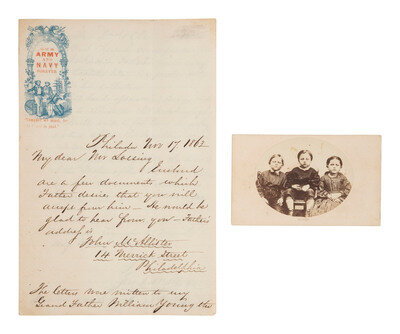 ARMY
AND
NAVY
Philada Nov 17, 1862
My dear Mr Lossing
Enclosed
are a few documents which
Father desires that you will
accept from him — He would be
glad to hear from you — Father's
address is
John McAllister
14 Merrick Street
Philadelphia
The letters were written to my
Grand Father William Young the